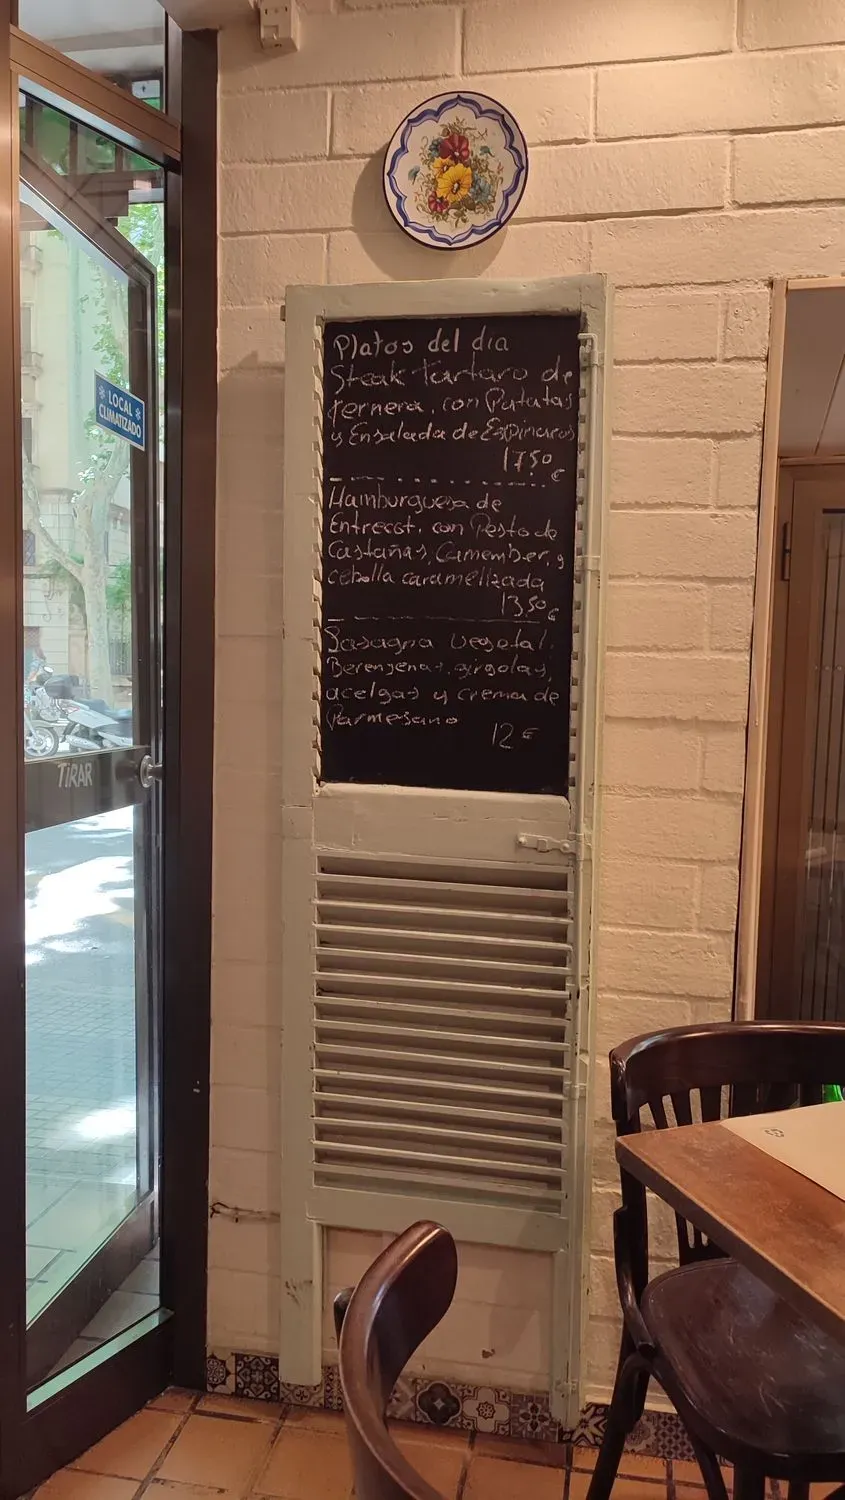 LOCAL
CLIMATIZADO
TIRAR
Platos del dia
Steak tartaro de
ternera, con Patatas
y Ensalada de Espinacas
17,50 €
Hamburguesa de
Entrecot, con Pesto de
Castañas, Camember, y
cebolla caramelizada
13,50 €
Lasagna vegetal,
Berenjenas, girgolas,
acelgas y crema de
Parmesano
12 €